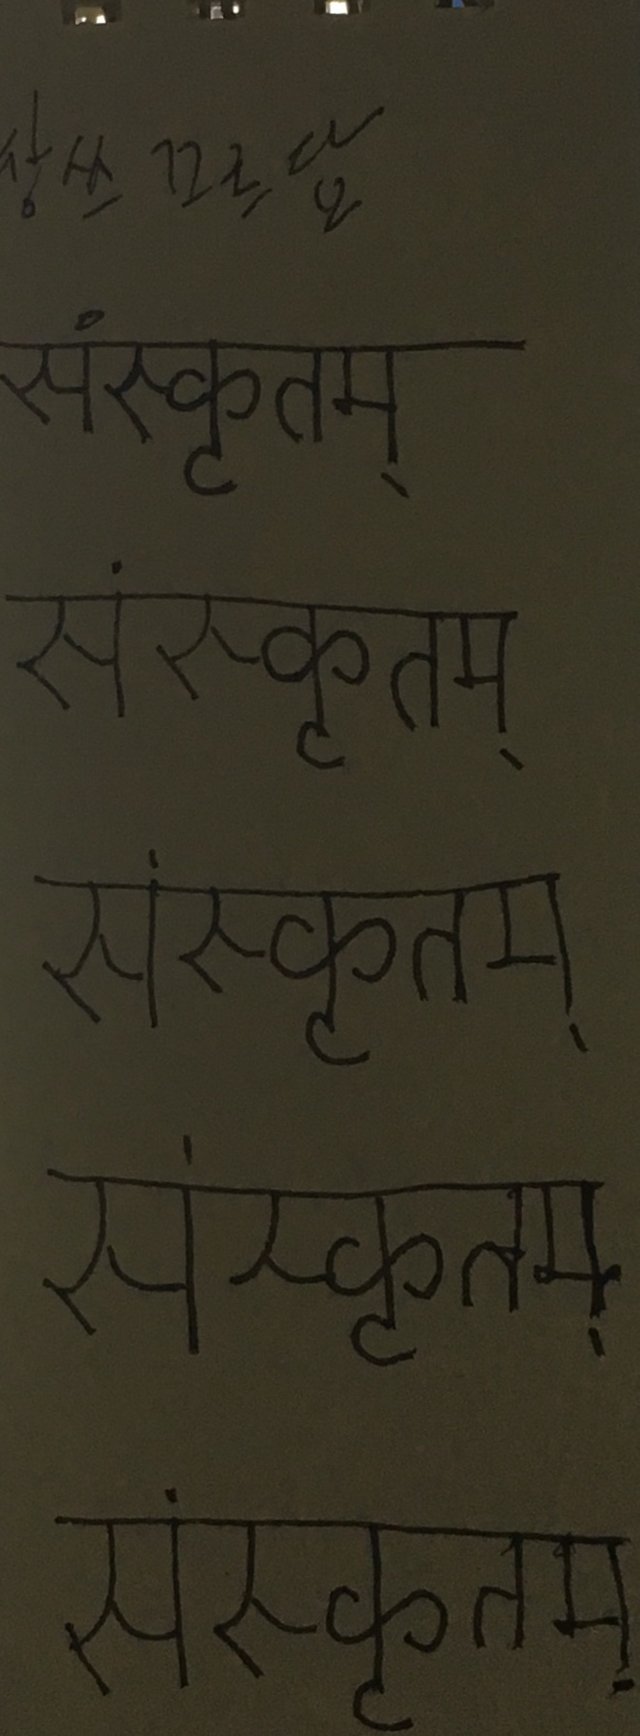 संस्कृतम्
संस्कृतम्
संस्कृतम्
संस्कृतम्
संस्कृतम्